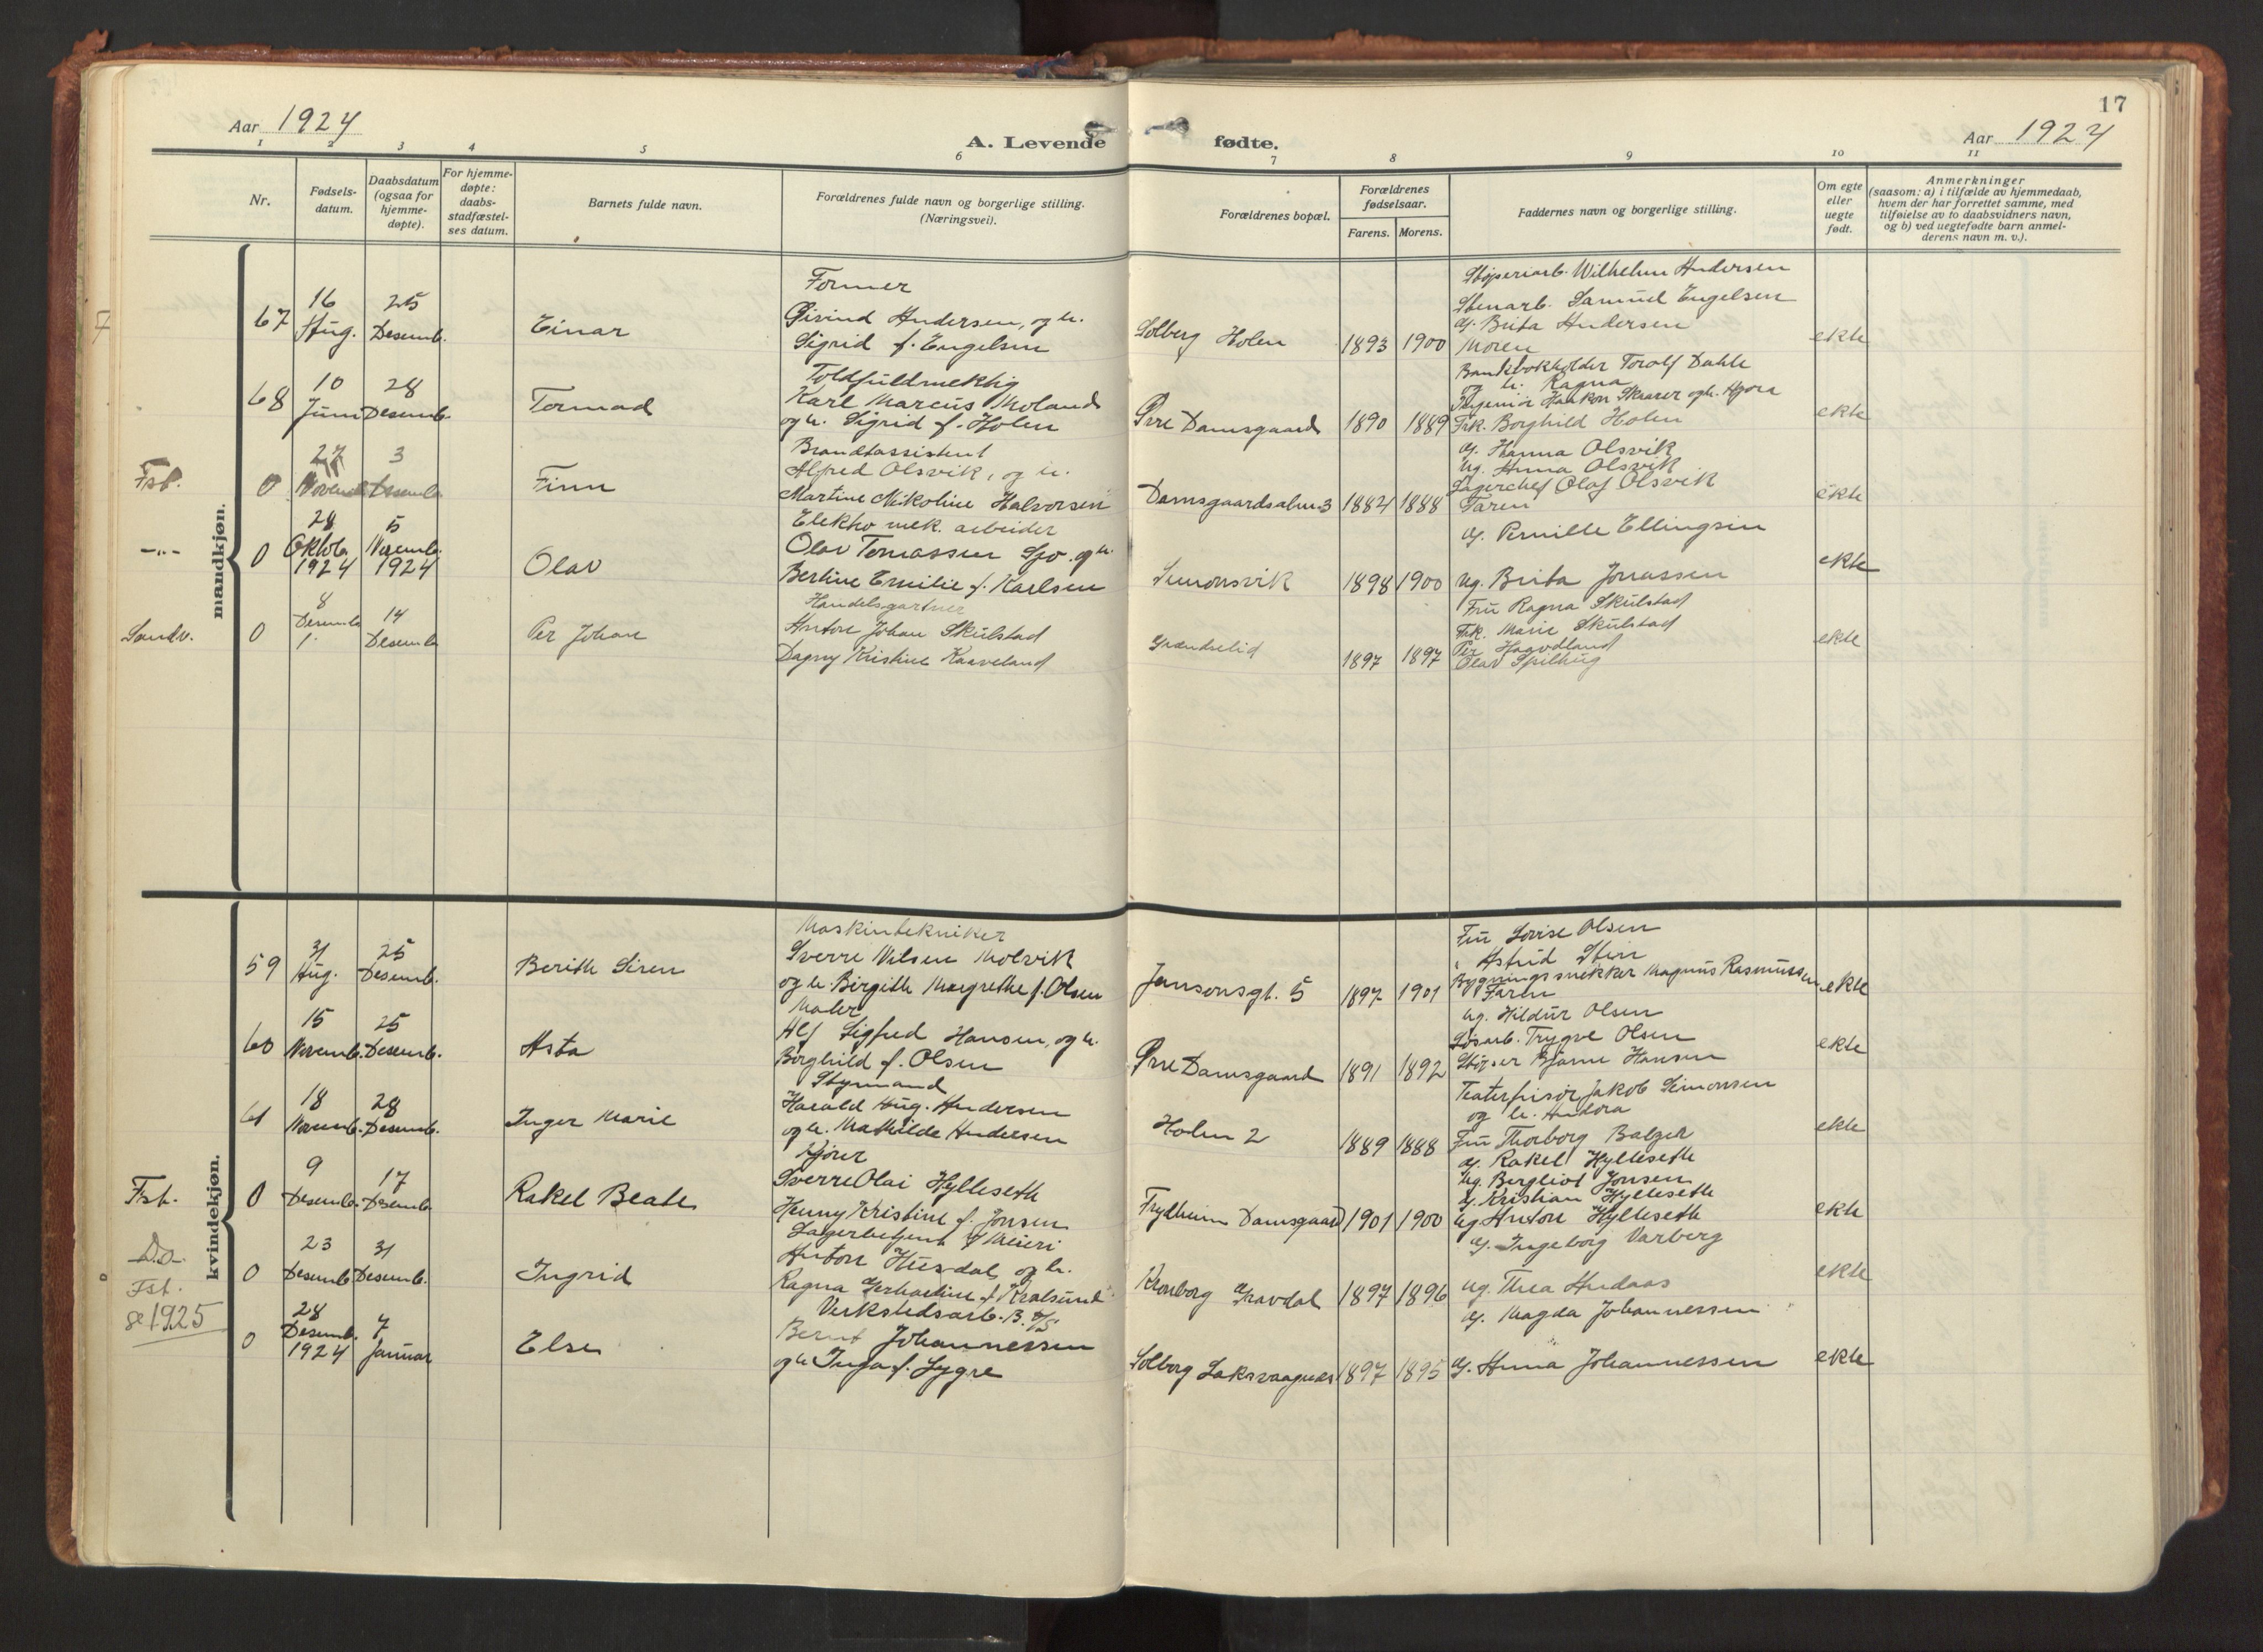 17
Aar 1924
A. Levende fødte.
Aar 1924
1 2 3 4 5 6 7 8 9 10 11
Nr.
Fødsels-
datum.
Daabsdatum
(ogsaa for
hjemme-
døpte).
For hjemme-
døpte:
daabs-
stadfæstel-
ses datum.
Barnets fulde navn.
Forældrenes fulde navn og borgerlige stilling.
(Næringsvei).
Forældrenes bopæl.
Forældrenes
fødselsaar.
Farens. Morens.
Faddernes navn og borgerlige stilling.
Om egte
eller
uegte
født.
Anmerkninger
(saasom: a) i tilfælde av hjemmedaab,
hvem der har forrettet samme, med
tilføielse av to daabsvidners navn,
og b) ved uegtefødte barn anmel-
derens navn m. v.).
mandkjøn.
67
16
Aug.
25
Desemb.
Einar
Former
Øivind Andersen, og h.
Sigrid f. Engelsen
Solberg Holen
1893 1900
Støperiarb. Wilhelm Andersen
Stenarb. Samuel Engelsen
G. Brita Andersen
Moren
ekte
68
10
Juni
28
Desemb.
Tormod
Toldfuldmektig
Karl Marcus Moland
og h. Sigrid f. Holen
Øvre Damsgaard
1890 1889
Bankbokholder Torolf Dahle
og h. Ragna
Ingeniør Haakon Skaarer og h. Agora
Frk. Borghild Holen
ekte
Fst.
0
27
Novemb
3
Desemb
Finn
Brandassistent
Alfred Olsvik, og h.
Martine Nikoline Halvorsen
Damsgaardsalm. 3
1884 1888
G. Hanna Olsvik
Ug. Anna Olsvik
Lagerchef Olaf Olsvik
Faren
ekte
-"-
0
28
Oktob.
1924
5
Novemb.
1924
Olav
Elektro mek. arbeider
Olav Tomassen og h.
Bertine Emilie f. Karlsen
Simonsvik
1898 1900
G. Pernille Ellingsen
Ug. Brita Jonassen
ekte
Sandv.
0
8
Desemb
1.
14
Desemb
Per Johan
Handelsgartner
Anton Johan Skulstad
Dagny Kristine Kaaveland
1897 1897
Fru Ragna Skulstad
Frk. Marie Skulstad
Per Haavdland
Olav
ekte
kvindekjøn.
59
31
Aug.
25
Desemb.
Berith Siren
Maskintekniker
Sverre Nilsen Molvik
og h. Birgith Margrethe f. Olsen
Jansonsgt. 5
1897 1901
Fru Lovise Olsen
" Astrid Stein
Bygningssnekker Magnus Rasmussen
Faren
ekte
60
15
Novemb.
25
Desemb.
Asta
Maler
Alf Sigfred Hansen, og h.
Borghild f. Olsen
Øvre Damsgaard
1891 1892
Ug. Hildur Olsen
Løsarb. Trygve Olsen
Støper Bjarne Hansen
ekte
61
18
Novemb.
28
Desemb.
Inger Marie
Styrmand
Harald Aug. Andersen
og h. Mathilde Andersen
Holen 2
1889 1888
Teaterfrisør Jakob Simonsen
og h. Andora
Fru Thorborg Balzer
ekte
Fst.
0
9
Desemb.
17
Desemb.
Rakel Beate
Kjører
Sverre Olai Hylleseth
Henny Kristine f. Jonsen
Frydheim Damsgaard
1901 1900
G. Rakel Hylleseth
Ug. Bergliot Jonsen
G. Kristian Hylleseth
Ug. Anton Hylleseth
ekte
Do-
0
23
Desemb
31
Desemb.
Ingrid
Lagerbetjent i Meieri
Anton Husdal, og h.
Ragna Gerhardine f. Kralsund
Kronborg Gravdal
1897 1896
G. Ingeborg Varberg
Ug. Thea Andaas
ekte
Fst.
se 1925
0
28
Desemb.
1924
7
Januar
Else
Verkstedsarb. B. M/S
Bernt Johannessen
og h. Inga f. Sygre
Solberg Laksevaagnes
1897 1895
G. Magda Johannessen
G. Anna Johannessen
ekte